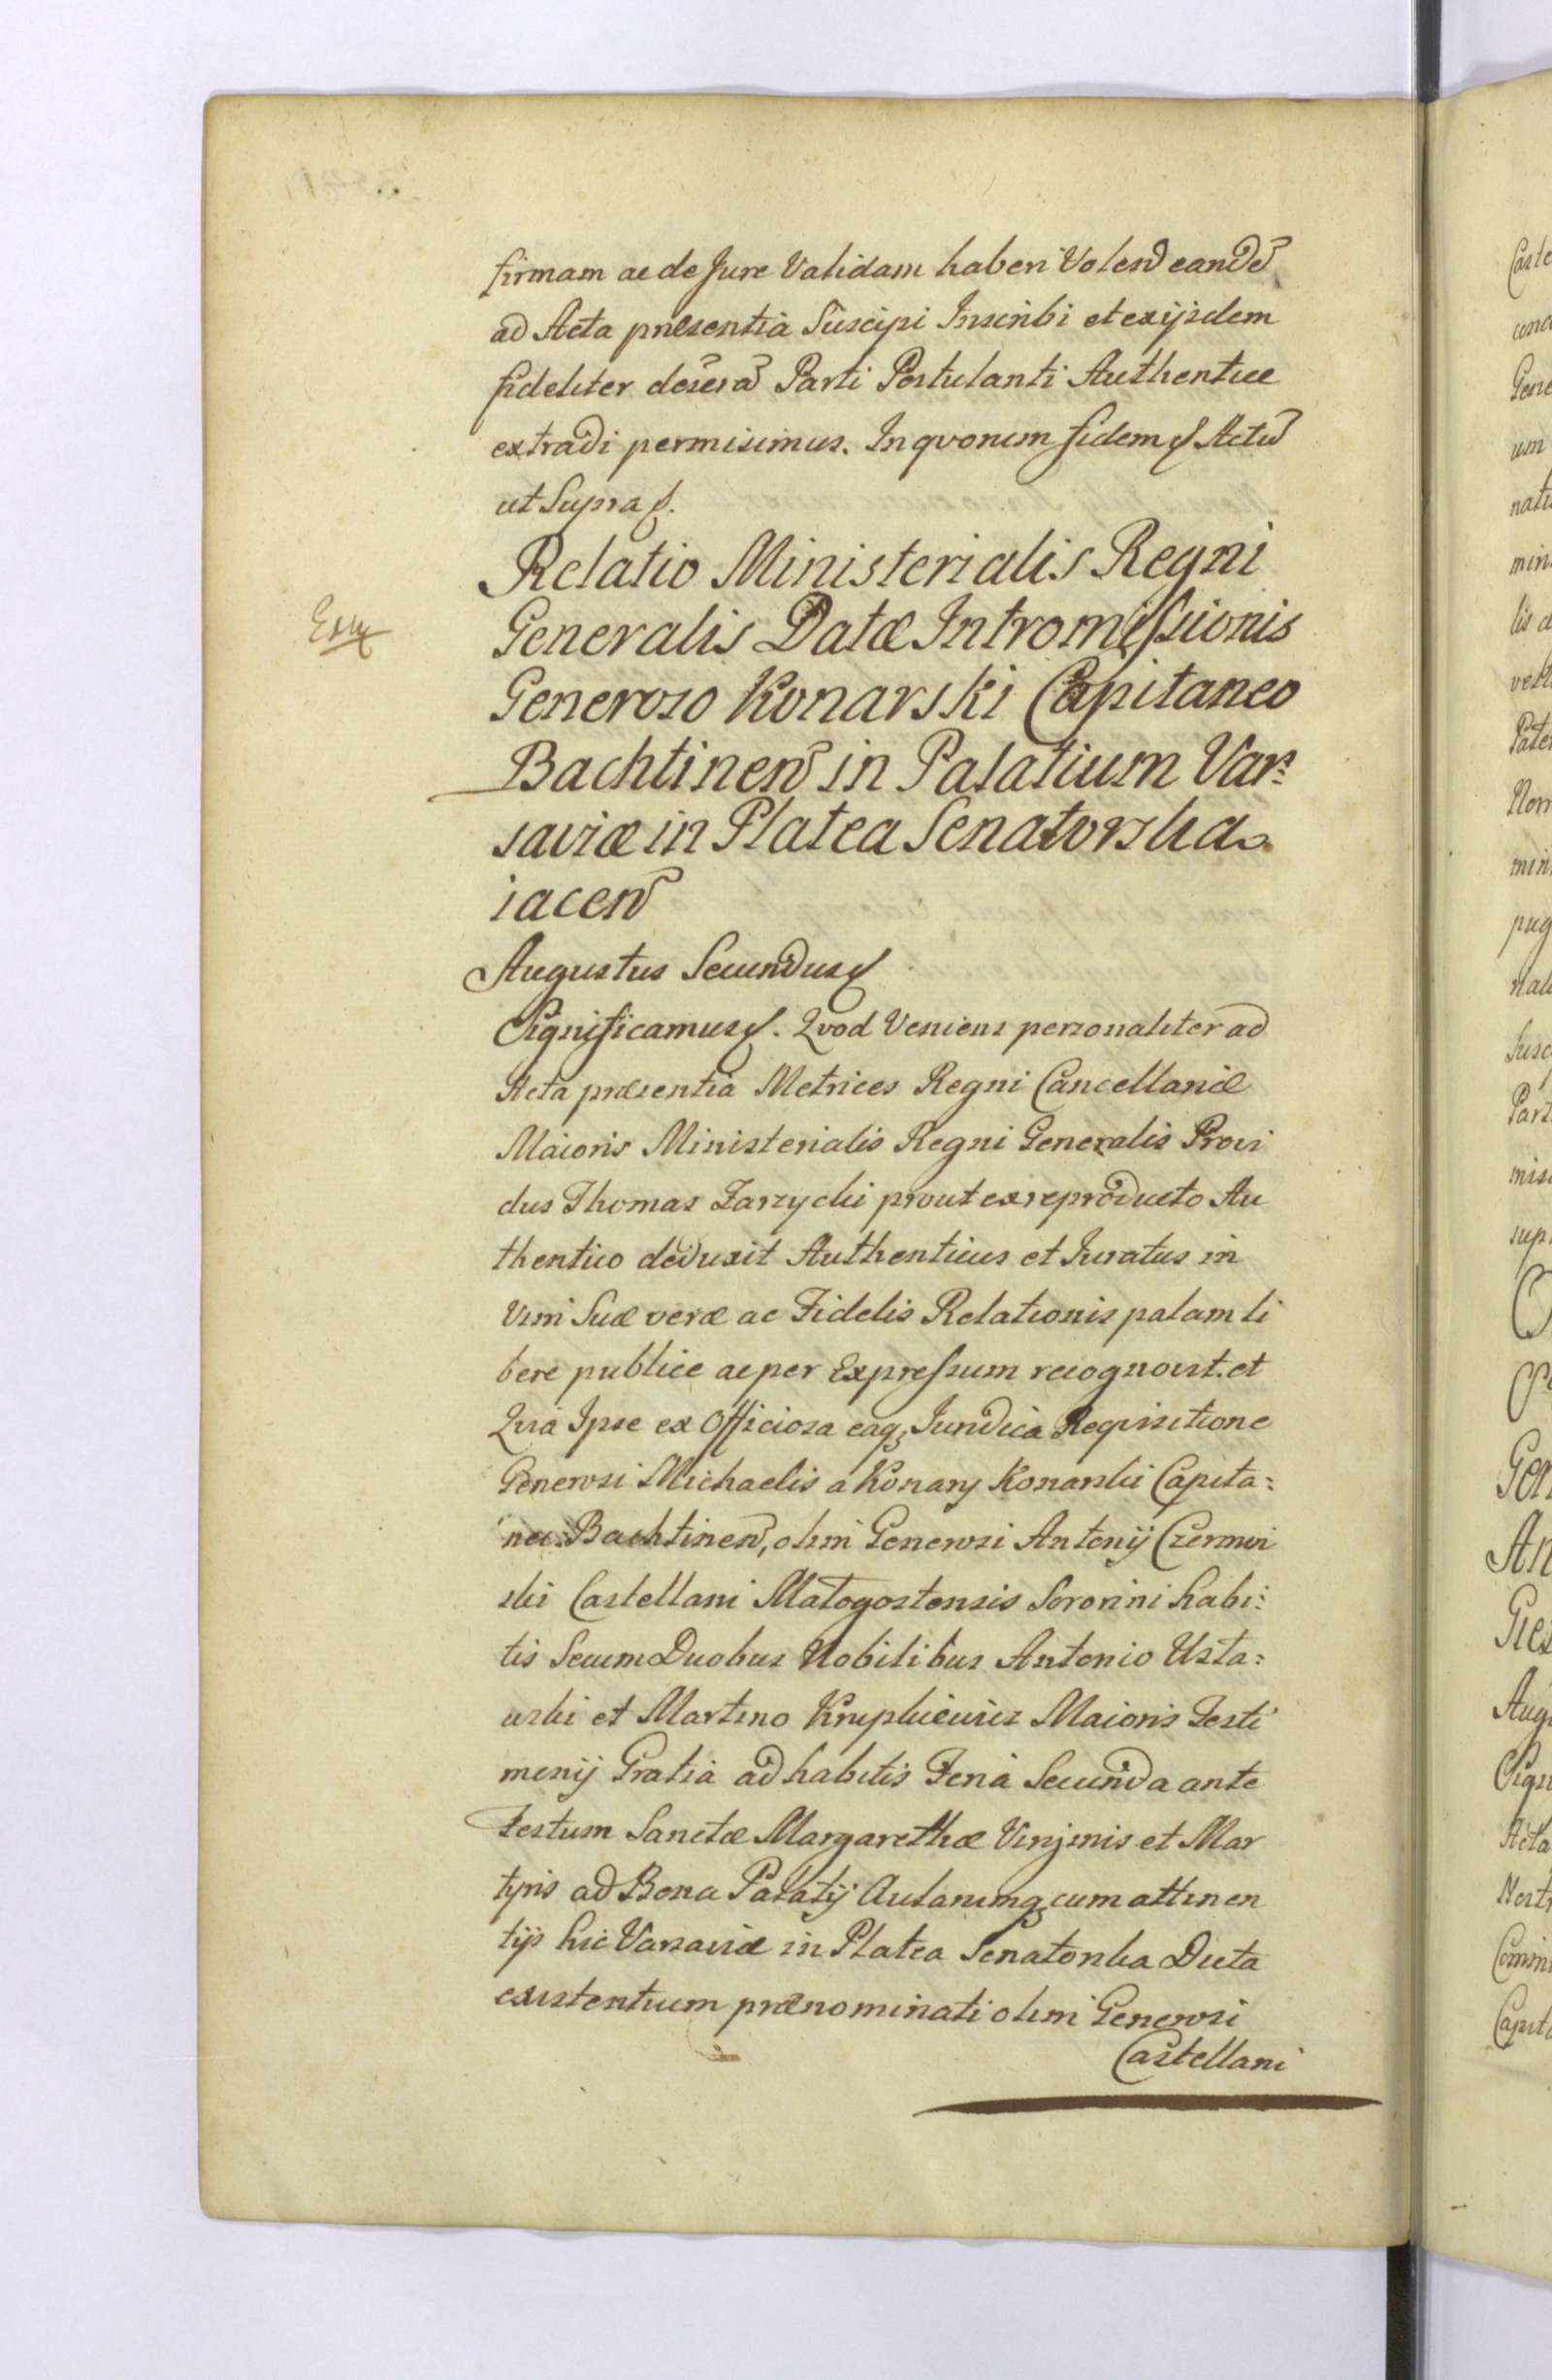 firmam ac de Jure Validam haberi Volen eande
ad Acta præsentia Suscipi Inscribi et ex ijsdem
fideliter desera Parti Postulanti Authentice
extradi permisimus. In qvorum fidem &c Actu
ut Supra &c.
Relatio Ministerialis Regni
Generalis Datæ Intromissionis
Generoso Konarski Capitaneo
Bachtinen in Palatium Var:
saviæ in Platea Senatorska
iacen
Augustus Secundus &c
Significamus &c. Qvod Veniens personaliter ad
Acta præsentia Metrices Regni Cancellariæ
Maioris Ministerialis Regni Generalis Provi
dus Thomas Zarzycki prout ex reproducto Au
thentico deduxit Authenticus et Juratus in
Vim Suæ veræ ac Fidelis Relationis palam li
bere publice ac per Expressum recognovit. et
Qvia Ipse ex Officiosa eaq; Juridica Requisitione
Generosi Michaelis a Konary Konarski Capita:
nei Bachtinen, olim Generosi Antonij Czermin
ski Castellani Małogostensis Sororini habi:
tis Secum Duobus Nobilibus Antonio Usta:
uski et Martino Krupkiewicz Maioris Testi
monij Gratia ad habitis Feria Secunda ante
Festum Sanctæ Margarethæ Virginis et Mar
tyris ad Bona Palatij Aularumq; cum attinen
tijs hic Varsaviæ in Platea Senatorska Dicta
existentium prænominati olim Generosi
Castellani